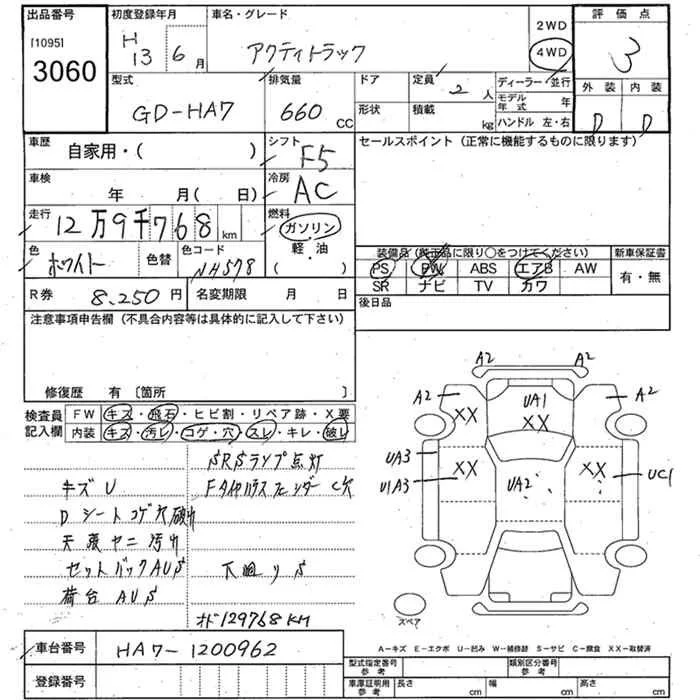 出品番号
[1095]
3060
初度登録年月
H 13 6 月
車名・グレード
アクティトラック
2WD
4WD
評価点
3
外装 内装
D D
型式
GD-HA7
排気量
660 CC
ドア
形状
定員 2 人
積載 kg
ディーラー・並行
モデル年式 年
ハンドル 左・右
車歴
自家用・( )
シフト
F5
セールスポイント (正常に機能するものに限ります)
車検
年 月( 日)
冷房
AC
走行
12万9千768 km
燃料
ガソリン
軽・油
( )
色
ホワイト
色替
色コード
NH578
装備品 (純正品に限り○をつけてください)
新車保証書
PS PW ABS エアB AW
有・無
SR ナビ TV カワ
R券 8,250 円
名変期限 月 日
後日品
注意事項申告欄 (不具合内容等は具体的に記入して下さい)
修復歴 有 〔箇所 〕
検査員記入欄
FW キズ・飛石・ヒビ割・リペア跡・X要
内装 キズ・汚レ・コゲ・穴・スレ・キレ・破レ
SRSランプ点灯
キズU
Fタイヤハウスフェンダー C穴
Dシートコゲ穴破れ
天張ヤニ汚れ
セットバックAUS
下廻りS
荷台AUS
オド129768KM
車台番号
HA7-1200962
登録番号
A2 A2
A2 A2
XX UA1 XX
XX
UA3 XX XX
U1A3 UA2 UC1
スペア
A-キズ E-エクボ U-凹み W-補修跡 S-サビ C-腐食 XX-取替済
型式指定番号 参考
類別区分番号 参考
車庫証明用 参考
長さ cm 幅 cm 高さ cm